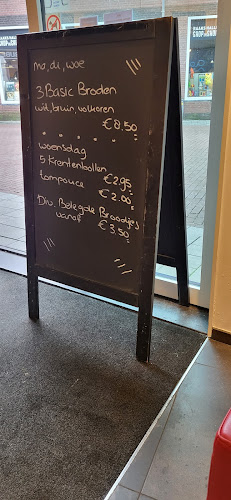 ma, di, woe
3 Basic Broden
wit, bruin, volkoren
€8.50
woensdag
5 Krentenbollen
€2.95
tompouce €2.00
Div. Belegde Broodjes
vanaf €3.50